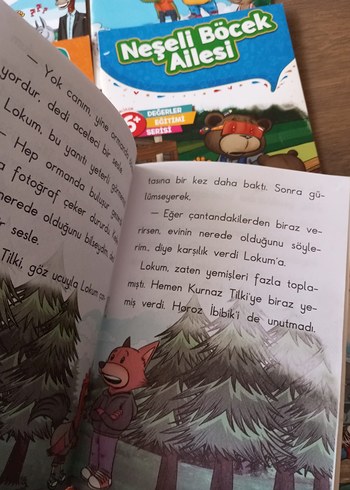 Neşeli Böcek
Ailesi
6+
DEĞERLER
EĞİTİMİ
SERİSİ
— Yok canım, yine ormanda
yordur, dedi aceleci bir sesle.
Lokum, bu yanıtı yeterli
— Hep ormanda buluşur
fotoğraf çeker dururdu.
nerede olduğunu bilseydim
sesle.
Tilki, göz ucuyla Lokum'un
tasına bir kez daha baktı. Sonra gü-
lümseyerek,
— Eğer çantandakilerden biraz ve-
rirsen, evinin nerede olduğunu söyle-
rim, diye karşılık verdi Lokum'a.
Lokum, zaten yemişleri fazla topla-
mıştı. Hemen Kurnaz Tilki'ye biraz ye-
miş verdi. Horoz İbibik'i de unutmadı.